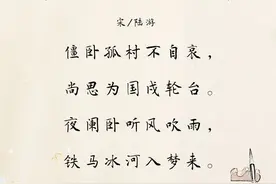 宋/陆游
僵卧孤村不自哀，
尚思为国戍轮台。
夜阑卧听风吹雨，
铁马冰河入梦来。